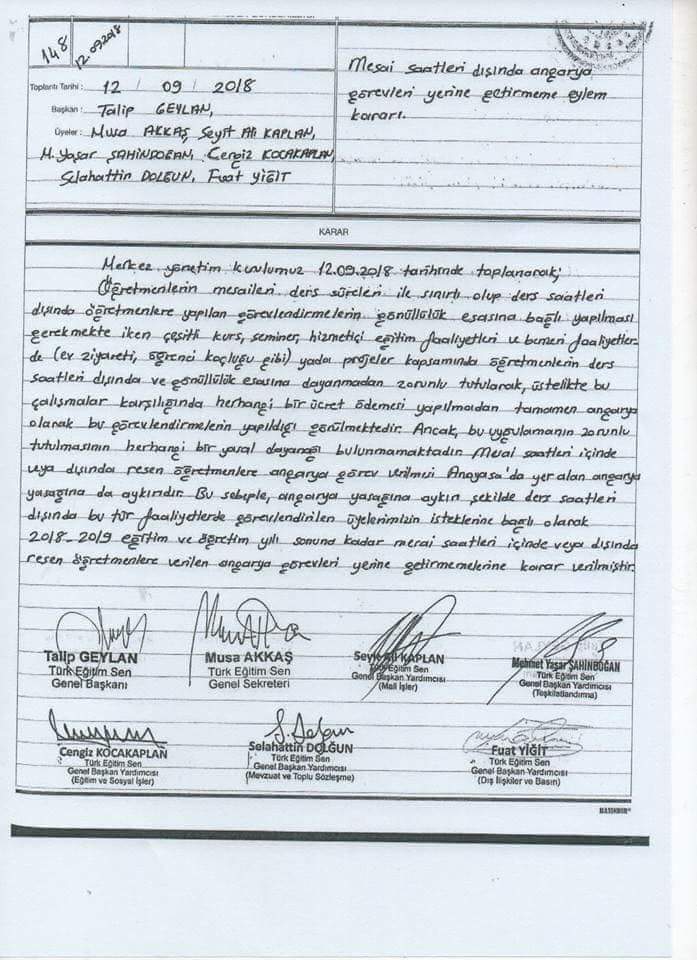 148
12.09.2018
Toplantı Tarihi : 12 / 09 / 2018
Başkan : Talip GEYLAN,
Üyeler : Musa AKKAŞ, Seyit Ali KAPLAN,
M. Yaşar ŞAHİNDOĞAN, Cengiz KOCAKAPLAN,
Selahattin DOLGUN, Fuat YİĞİT
Mesai saatleri dışında angarya
görevleri yerine getirmeme eylem
kararı.
KARAR
Merkez yönetim kurulumuz 12.09.2018 tarihinde toplanarak;
Öğretmenlerin mesaileri ders süreleri ile sınırlı olup ders saatleri
dışında öğretmenlere yapılan görevlendirmelerin gönüllülük esasına bağlı yapılması
gerekmekte iken çeşitli kurs, seminer, hizmetiçi eğitim faaliyetleri ve benzeri faaliyetler-
de (ev ziyareti, öğrenci koçluğu gibi) yada projeler kapsamında öğretmenlerin ders
saatleri dışında ve gönüllülük esasına dayanmadan zorunlu tutularak, üstelikte bu
çalışmalar karşılığında herhangi bir ücret ödemesi yapılmadan tamamen angarya
olarak bu görevlendirmelerin yapıldığı görülmektedir. Ancak, bu uygulamanın zorunlu
tutulmasının herhangi bir yasal dayanağı bulunmamaktadır. Mesai saatleri içinde
veya dışında resen öğretmenlere angarya görev verilmesi Anayasa'da yer alan angarya
yasağına da aykırıdır. Bu sebeple, angarya yasağına aykırı şekilde ders saatleri
dışında bu tür faaliyetlerde görevlendirilen üyelerimizin isteklerine bağlı olarak
2018-2019 eğitim ve öğretim yılı sonuna kadar mesai saatleri içinde veya dışında
resen öğretmenlere verilen angarya görevleri yerine getirmemelerine karar verilmiştir.
Talip GEYLAN
Türk Eğitim Sen
Genel Başkanı
Musa AKKAŞ
Türk Eğitim Sen
Genel Sekreteri
Seyit Ali KAPLAN
Türk Eğitim Sen
Genel Başkan Yardımcısı
(Mali İşler)
Mehmet Yaşar ŞAHİNDOĞAN
Türk Eğitim Sen
Genel Başkan Yardımcısı
(Teşkilatlandırma)
Cengiz KOCAKAPLAN
Türk Eğitim Sen
Genel Başkan Yardımcısı
(Eğitim ve Sosyal İşler)
Selahattin DOLGUN
Türk Eğitim Sen
Genel Başkan Yardımcısı
(Mevzuat ve Toplu Sözleşme)
Fuat YİĞİT
Türk Eğitim Sen
Genel Başkan Yardımcısı
(Dış İlişkiler ve Basın)